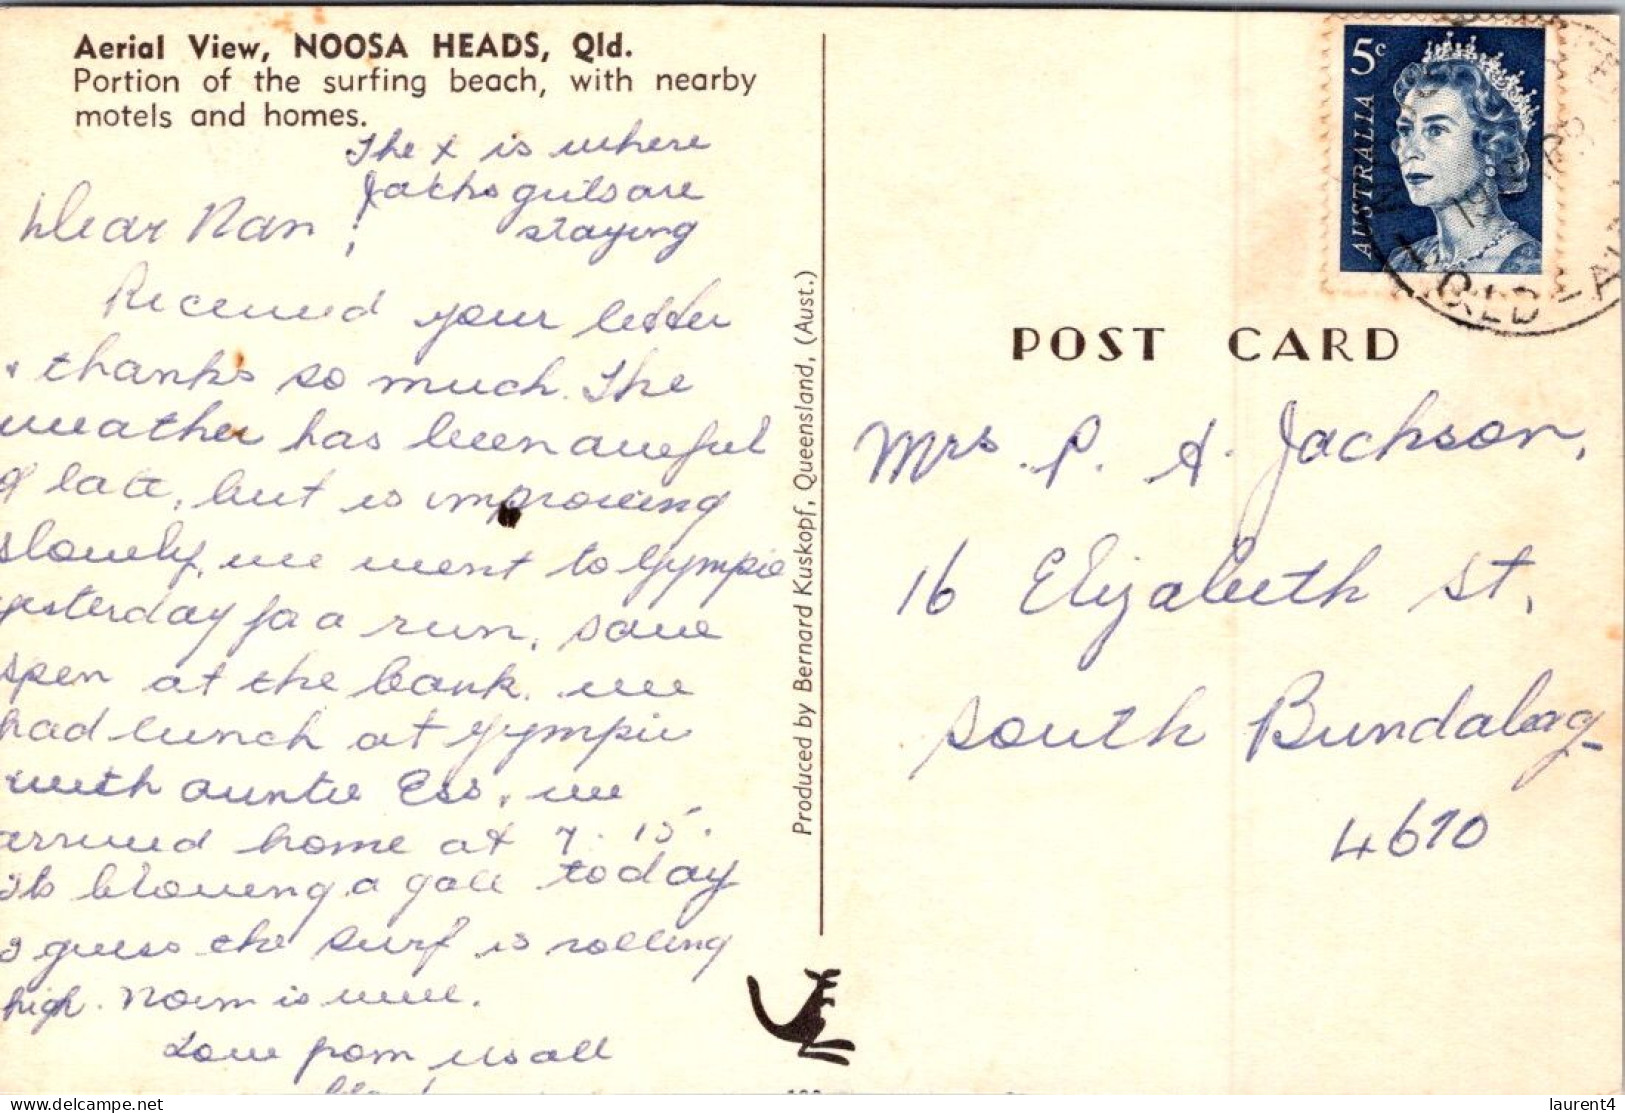 Aerial View, NOOSA HEADS, Qld.
Portion of the surfing beach, with nearby
motels and homes.
The x is where
are
staying
Dear Nan,
Received your letter
& thanks so much. The
weather has been awful
of late, but is improving
slowly, we went to Gympie
yesterday for a run,
at the bank. we
had lunch at Gympie
with auntie Ess, we
arrived home at 7.15.
Its blowing a gale today
I guess the surf is rolling
high. Norm is well.
Love from us all
Produced by Bernard Kuskopf, Queensland, (Aust.)
5c
AUSTRALIA
QLD-AUST
POST CARD
Mrs. P. A. Jackson,
16 Elizabeth St,
South Bundaberg
4670
laurent4